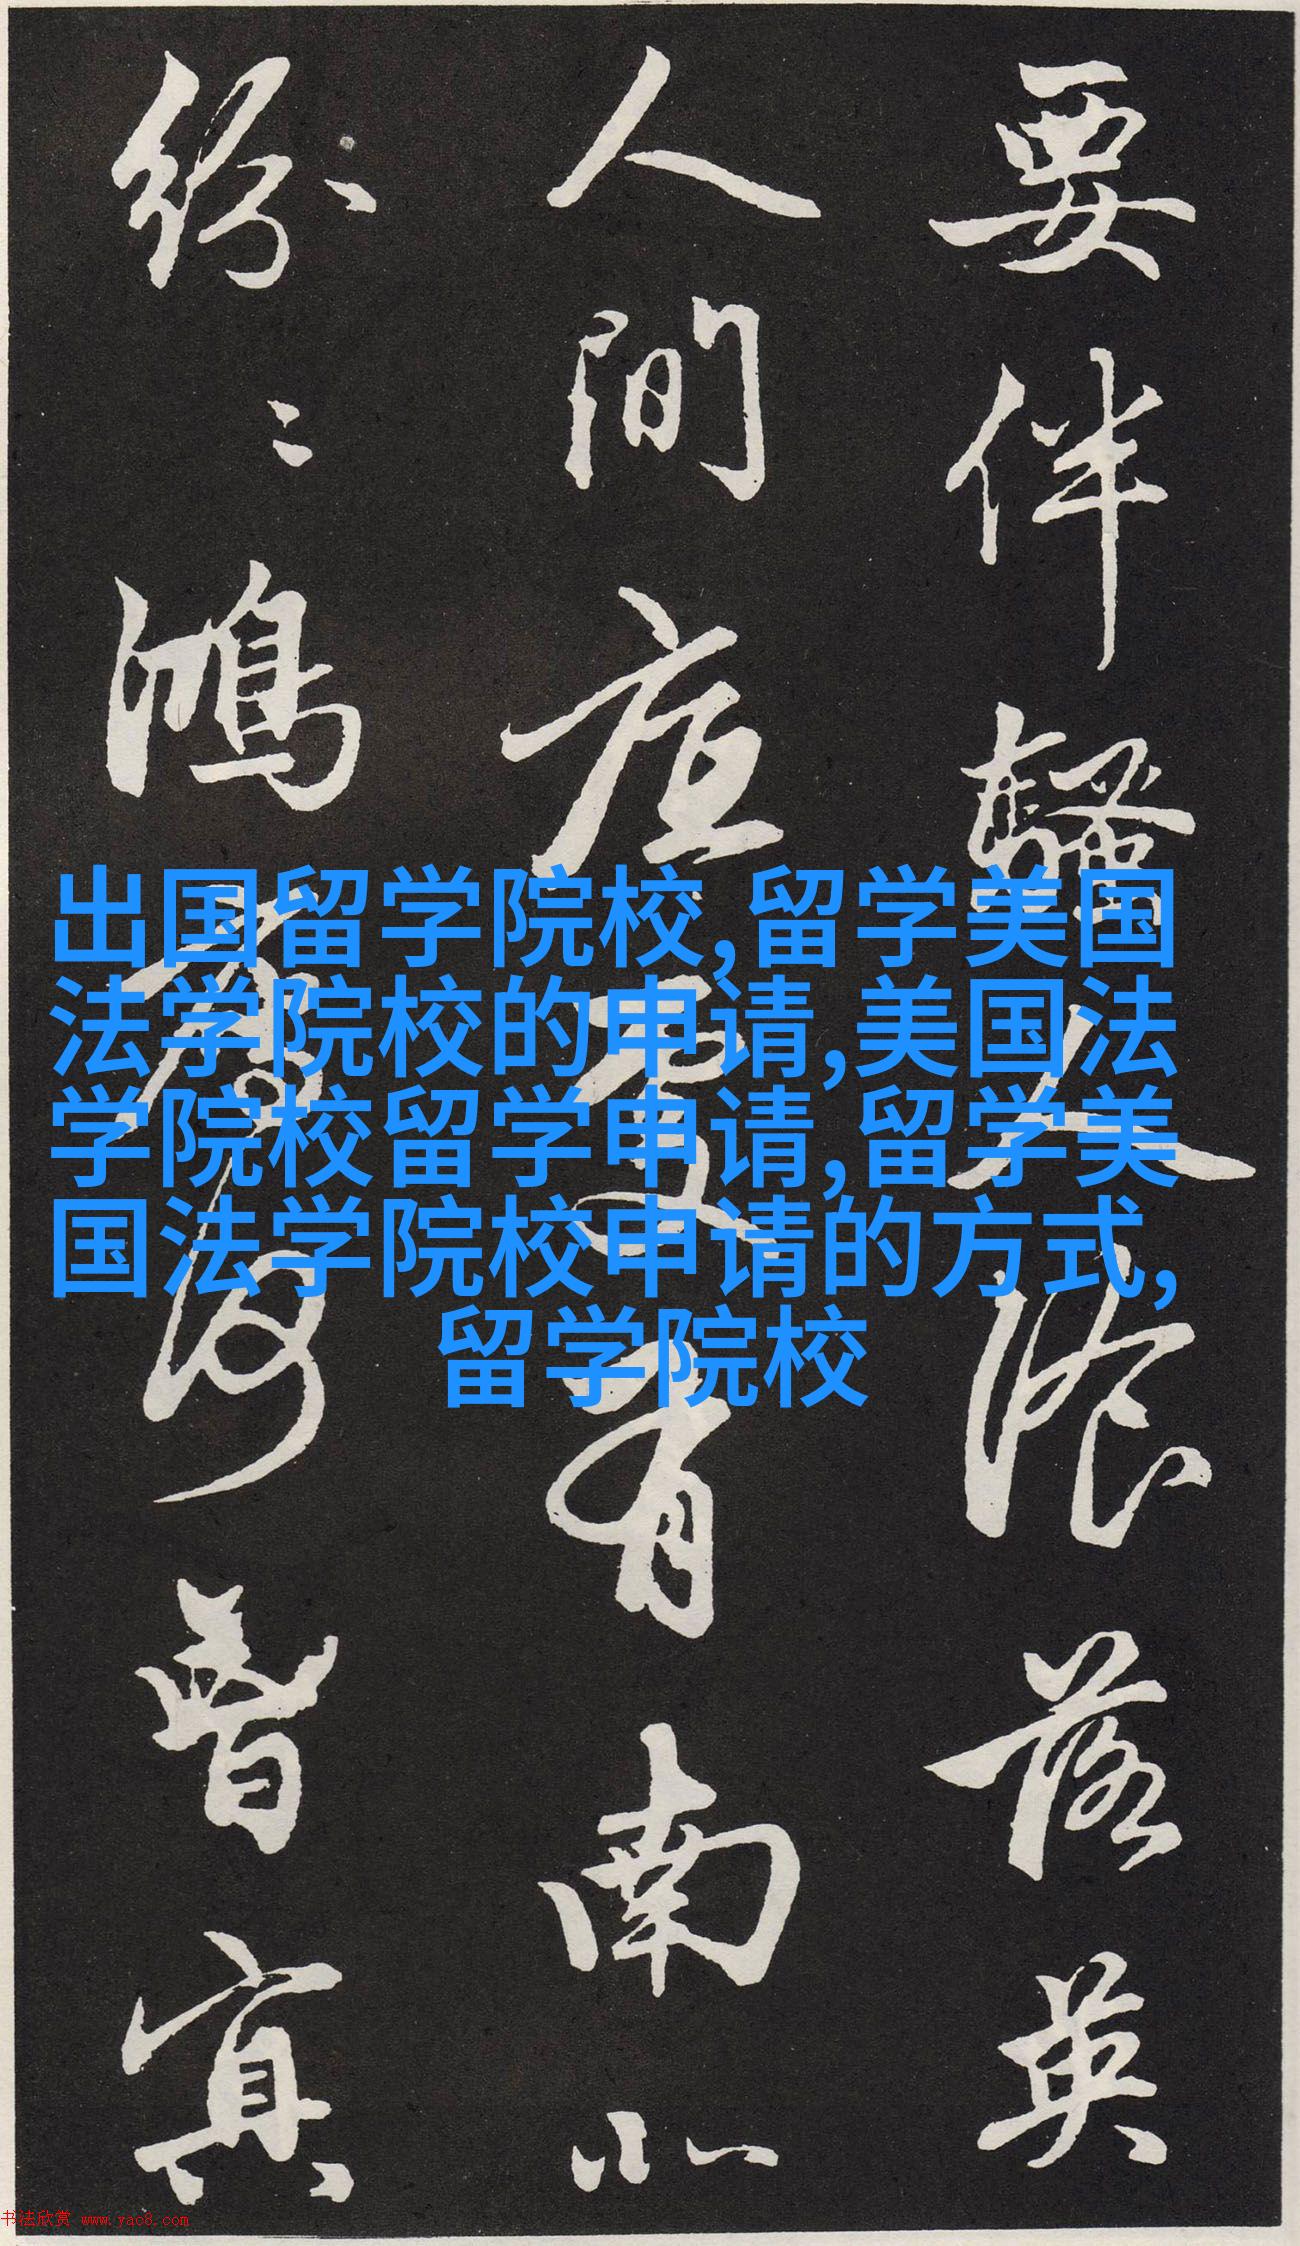 要伴騷人湌落英
人間底處有南北
紛〻鴻鴈何曾冥
出国留学院校,留学美国
法学院校的申请,美国法
学院校留学申请,留学美
国法学院校申请的方式,
留学院校
书法欣赏 www.yac8.com